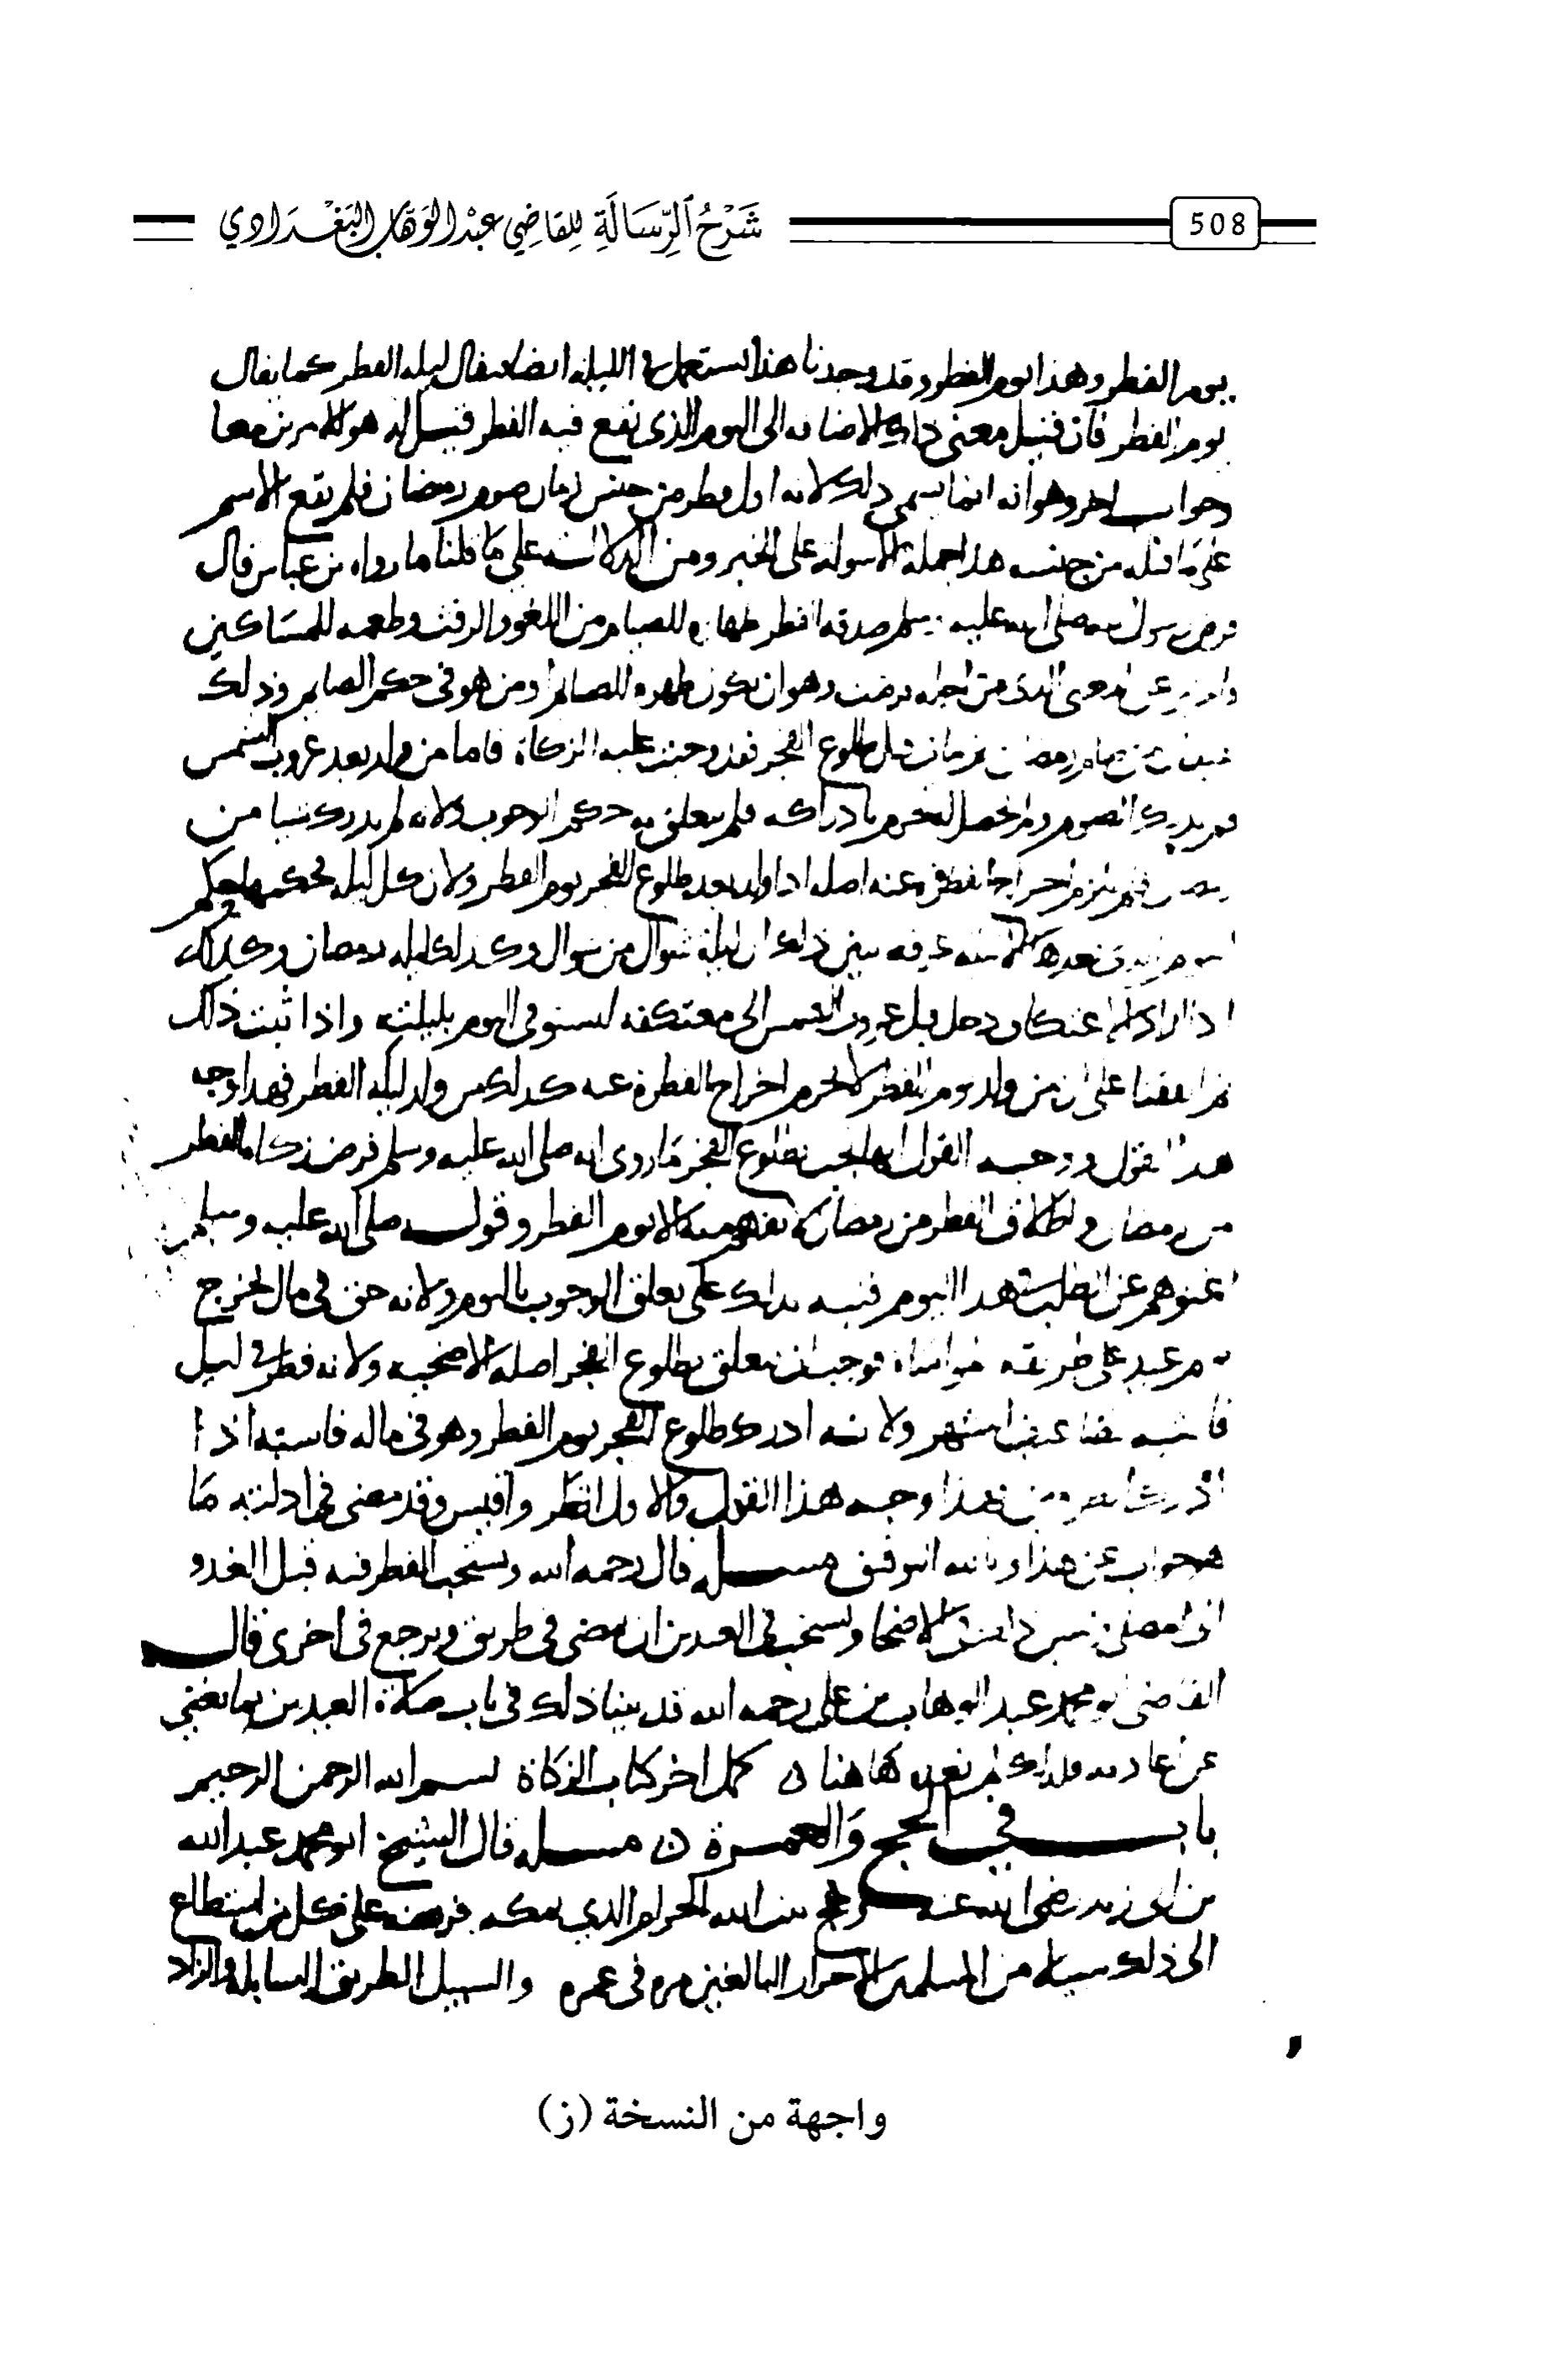 508
شَرْحُ ٱلرِّسَالَةِ لِلقَاضِي عَبْد الوَهَّاب البَغْدَادِي
يوم الفطر وهذا يوم الفطر وقد وجدنا هذا يستعمل في الليلة ايضا فيقال ليلة الفطر كما يقال
يوم الفطر فان قيل معنى ذلك الاضافه الى اليوم الذي يقع فيه الفطر قيل له هو للامرين معا
وجواب اخر وهو انه انما يسمى ذلك لانه اول فطر من جنس زمان صوم رمضان فلم يقع الاسم
على ما قبله من جنسه هذا جملة الاسولة على الخبر ومن الدلالة على ما قلنا ما رواه بن عباس قال
فرض رسول الله صلى الله عليه وسلم صدقة الفطر طهرة للصيام من اللغو والرفث وطعمه للمساكين
من اجله فرضت وهو ان يكون طهره للصائم او من هو في حكم الصايم وذلك
قبل طلوع الفجر فقد وجبت عليه الزكاة فاما من ولد بعد غروب الشمس
الصوم ولم يحصل بادراكه فلم يتعلق به حكم الوجوب ولانه لم يدرك شيا من
فلم يلزم اخراج الفطرة عنه اصله اذا ولد بعد طلوع الفجر يوم الفطر ولان كل ليلة فحكمها حكم
يبين ذلك ان ليلة شوال من شوال وكذلك ليلة رمضان وكذلك
اذا اراد الاعتكاف دخل قبل غروب الشمس الى معتكفه ليستوفي اليوم بليلته واذا ثبت ذلك
ثم اتفقنا على ان من ولد يوم الفطر لا يلزم اخراج الفطرة عنه كذلك من ولد ليلة الفطر فهذا وجه
هذا القول ووجه القول انها تجب بطلوع الفجر ما روي انه صلى الله عليه وسلم فرض زكاة الفطر
من رمضان واطلاق الفطر من رمضان لا يفهم منه الا يوم الفطر وقوله صلى الله عليه وسلم
اغنوهم عن الطلب هذا اليوم فنبه بذلك على تعلق الوجوب باليوم ولانه حق في مال يخرج
في يوم عيد على طريق المواساة فوجب ان يتعلق بطلوع الفجر اصله الاضحية ولانه فطر في ليل
فاشبه سائر الشهر ولانه ادرك طلوع الفجر يوم الفطر وهو في ماله فاشبه اذا
فهذا وجه هذا القول والاول انظر واقيس وقد مضى في ادلته ما
هو جواب عن هذا وبالله التوفيق مسله قال رحمه الله ويستحب الفطر فيه قبل الغدو
الى المصلى وليس ذلك في الاضحى ويستحب في العيدين ان يمضي في طريق ويرجع في اخرى قال
القاضي ابو محمد عبد الوهاب بن علي رحمه الله قد بينا ذلك في باب صلاة العيدين بما يغني
عن اعادته فلذلك لم نعده هاهنا ن كمل اخر كتاب الزكاة بسم الله الرحمن الرحيم
باب في الحج والعمرة ن مسله قال الشيخ ابو محمد عبد الله
بن ابي زيد رضي الله عنه وحج بيت الله الحرام الذي ببكه فريضه على كل من استطاع
الى ذلك سبيلا من المسلمين الاحرار البالغين مره في عمره والسبيل الطريق السابله والزاد
واجهة من النسخة (ز)